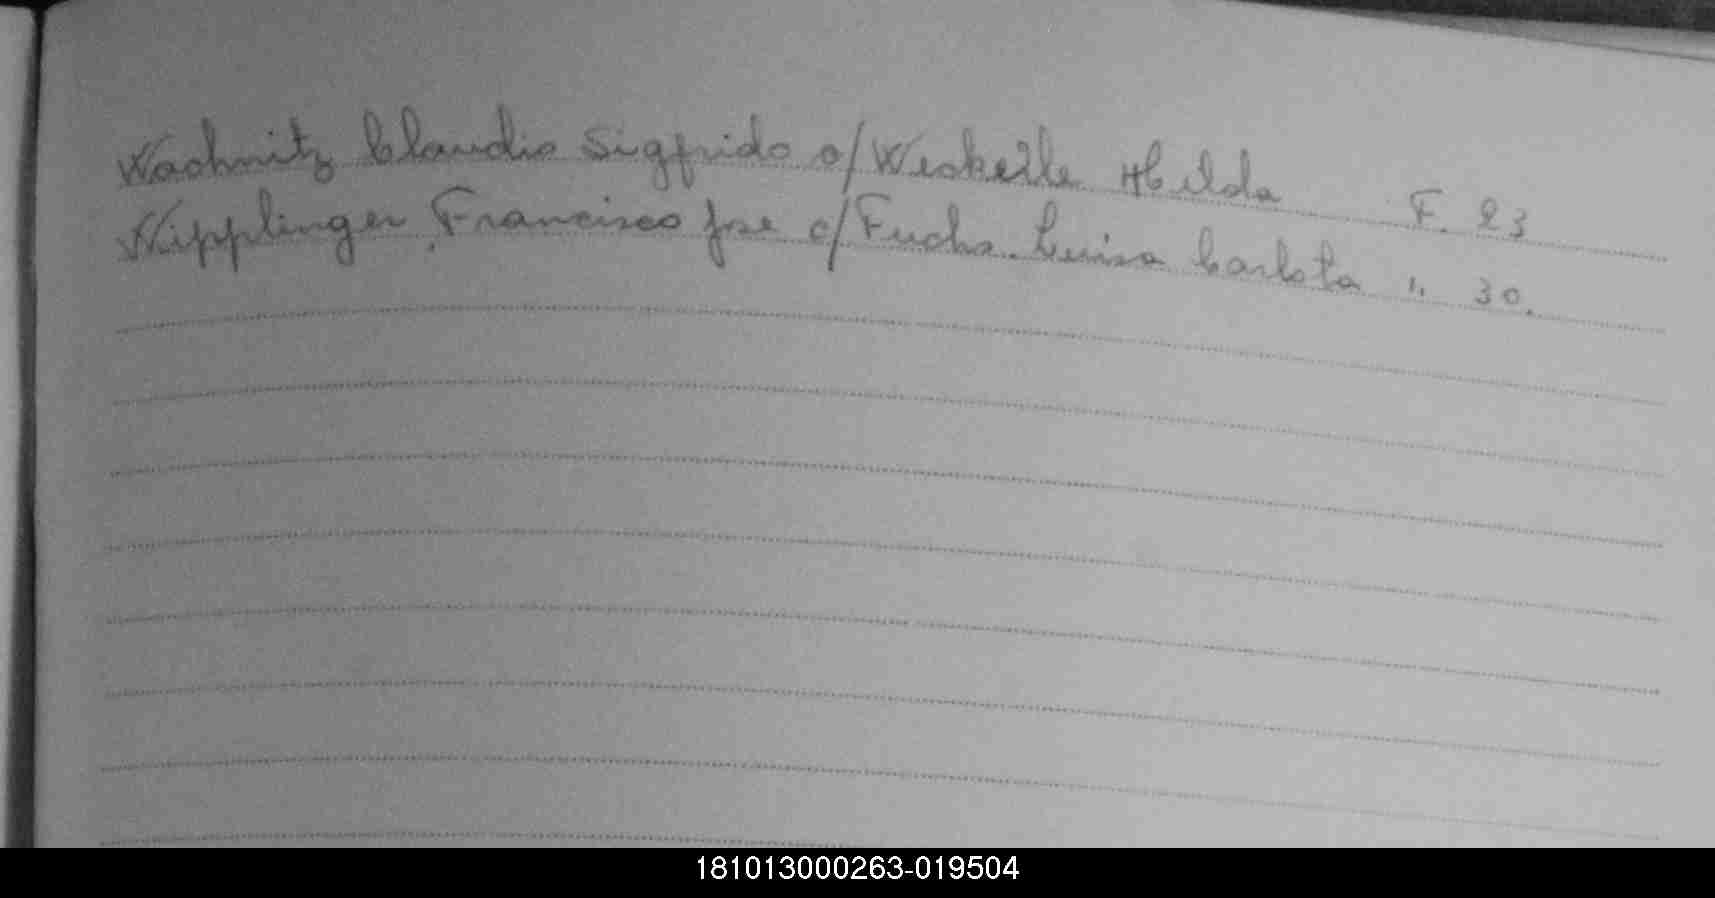 Wachnitz Claudio Sigfrido c/ Weskelle Hilda F. 23
Wipplinger, Francisco Jose c/ Fuchs. Luisa Carlota " 30.
181013000263-019504